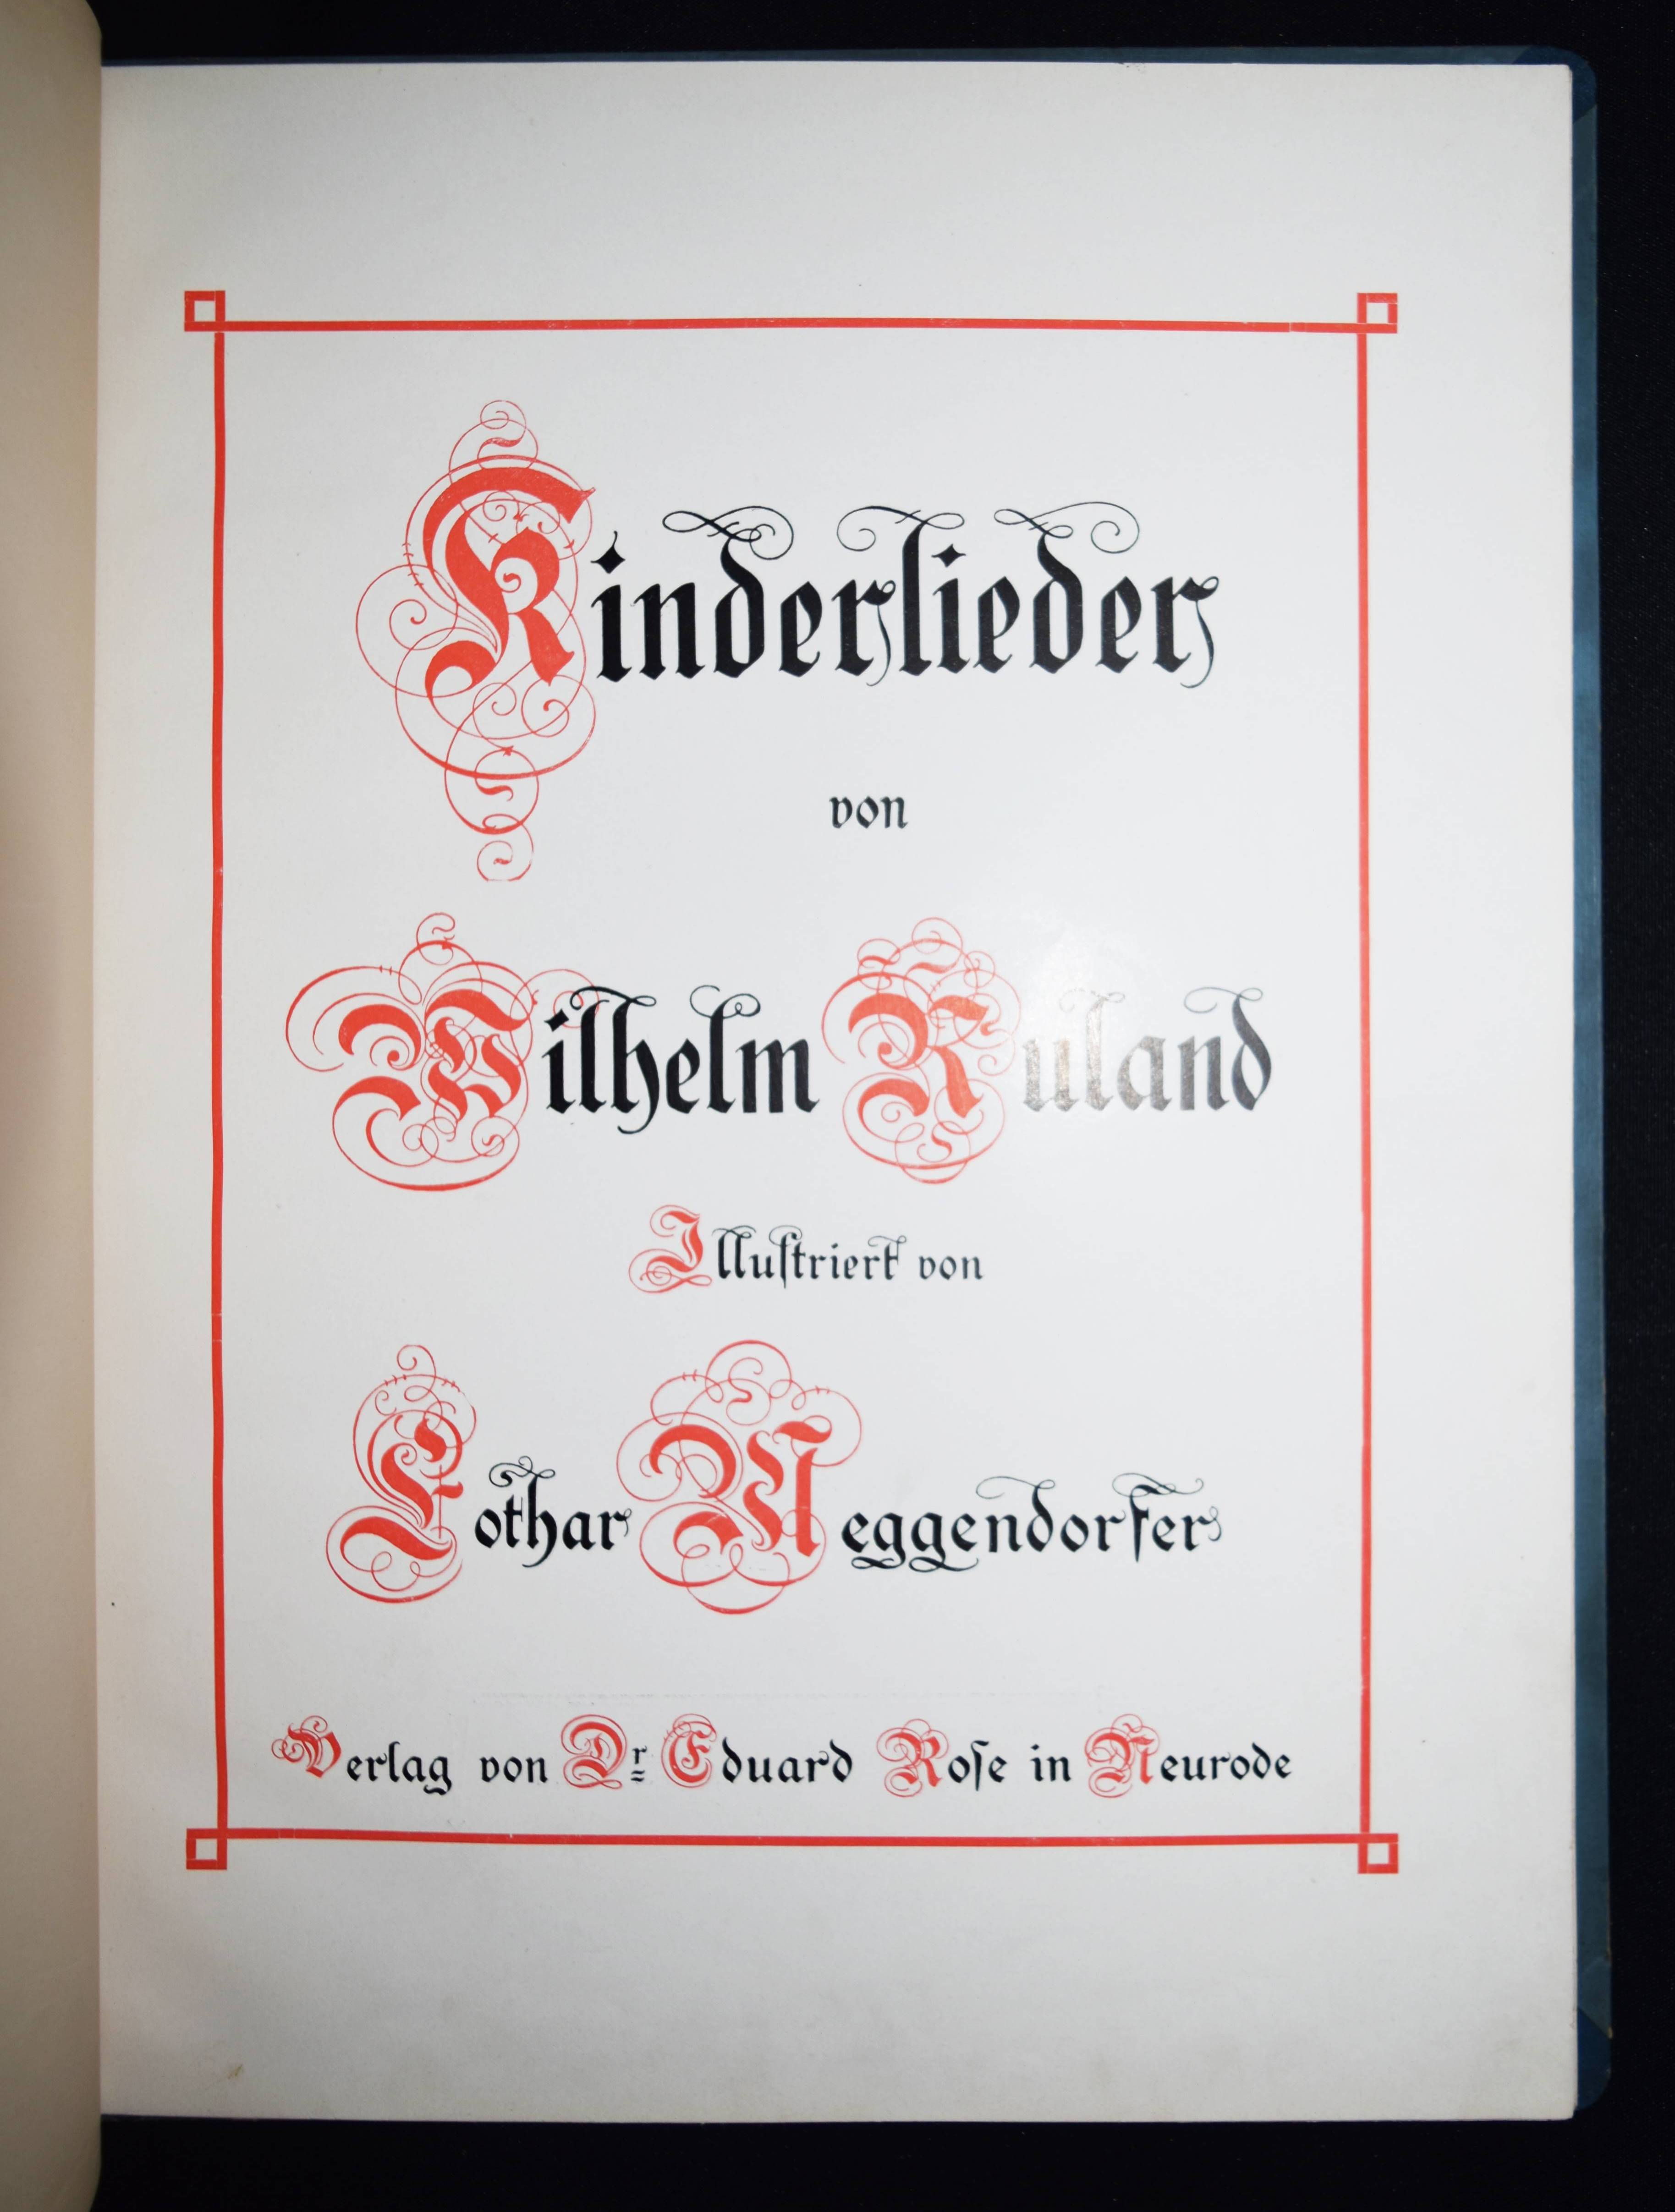 Kinderlieder
von
Wilhelm Ruland
Illuſtriert von
Lothar Meggendorfer
Verlag von Dr. Eduard Roſe in Neurode